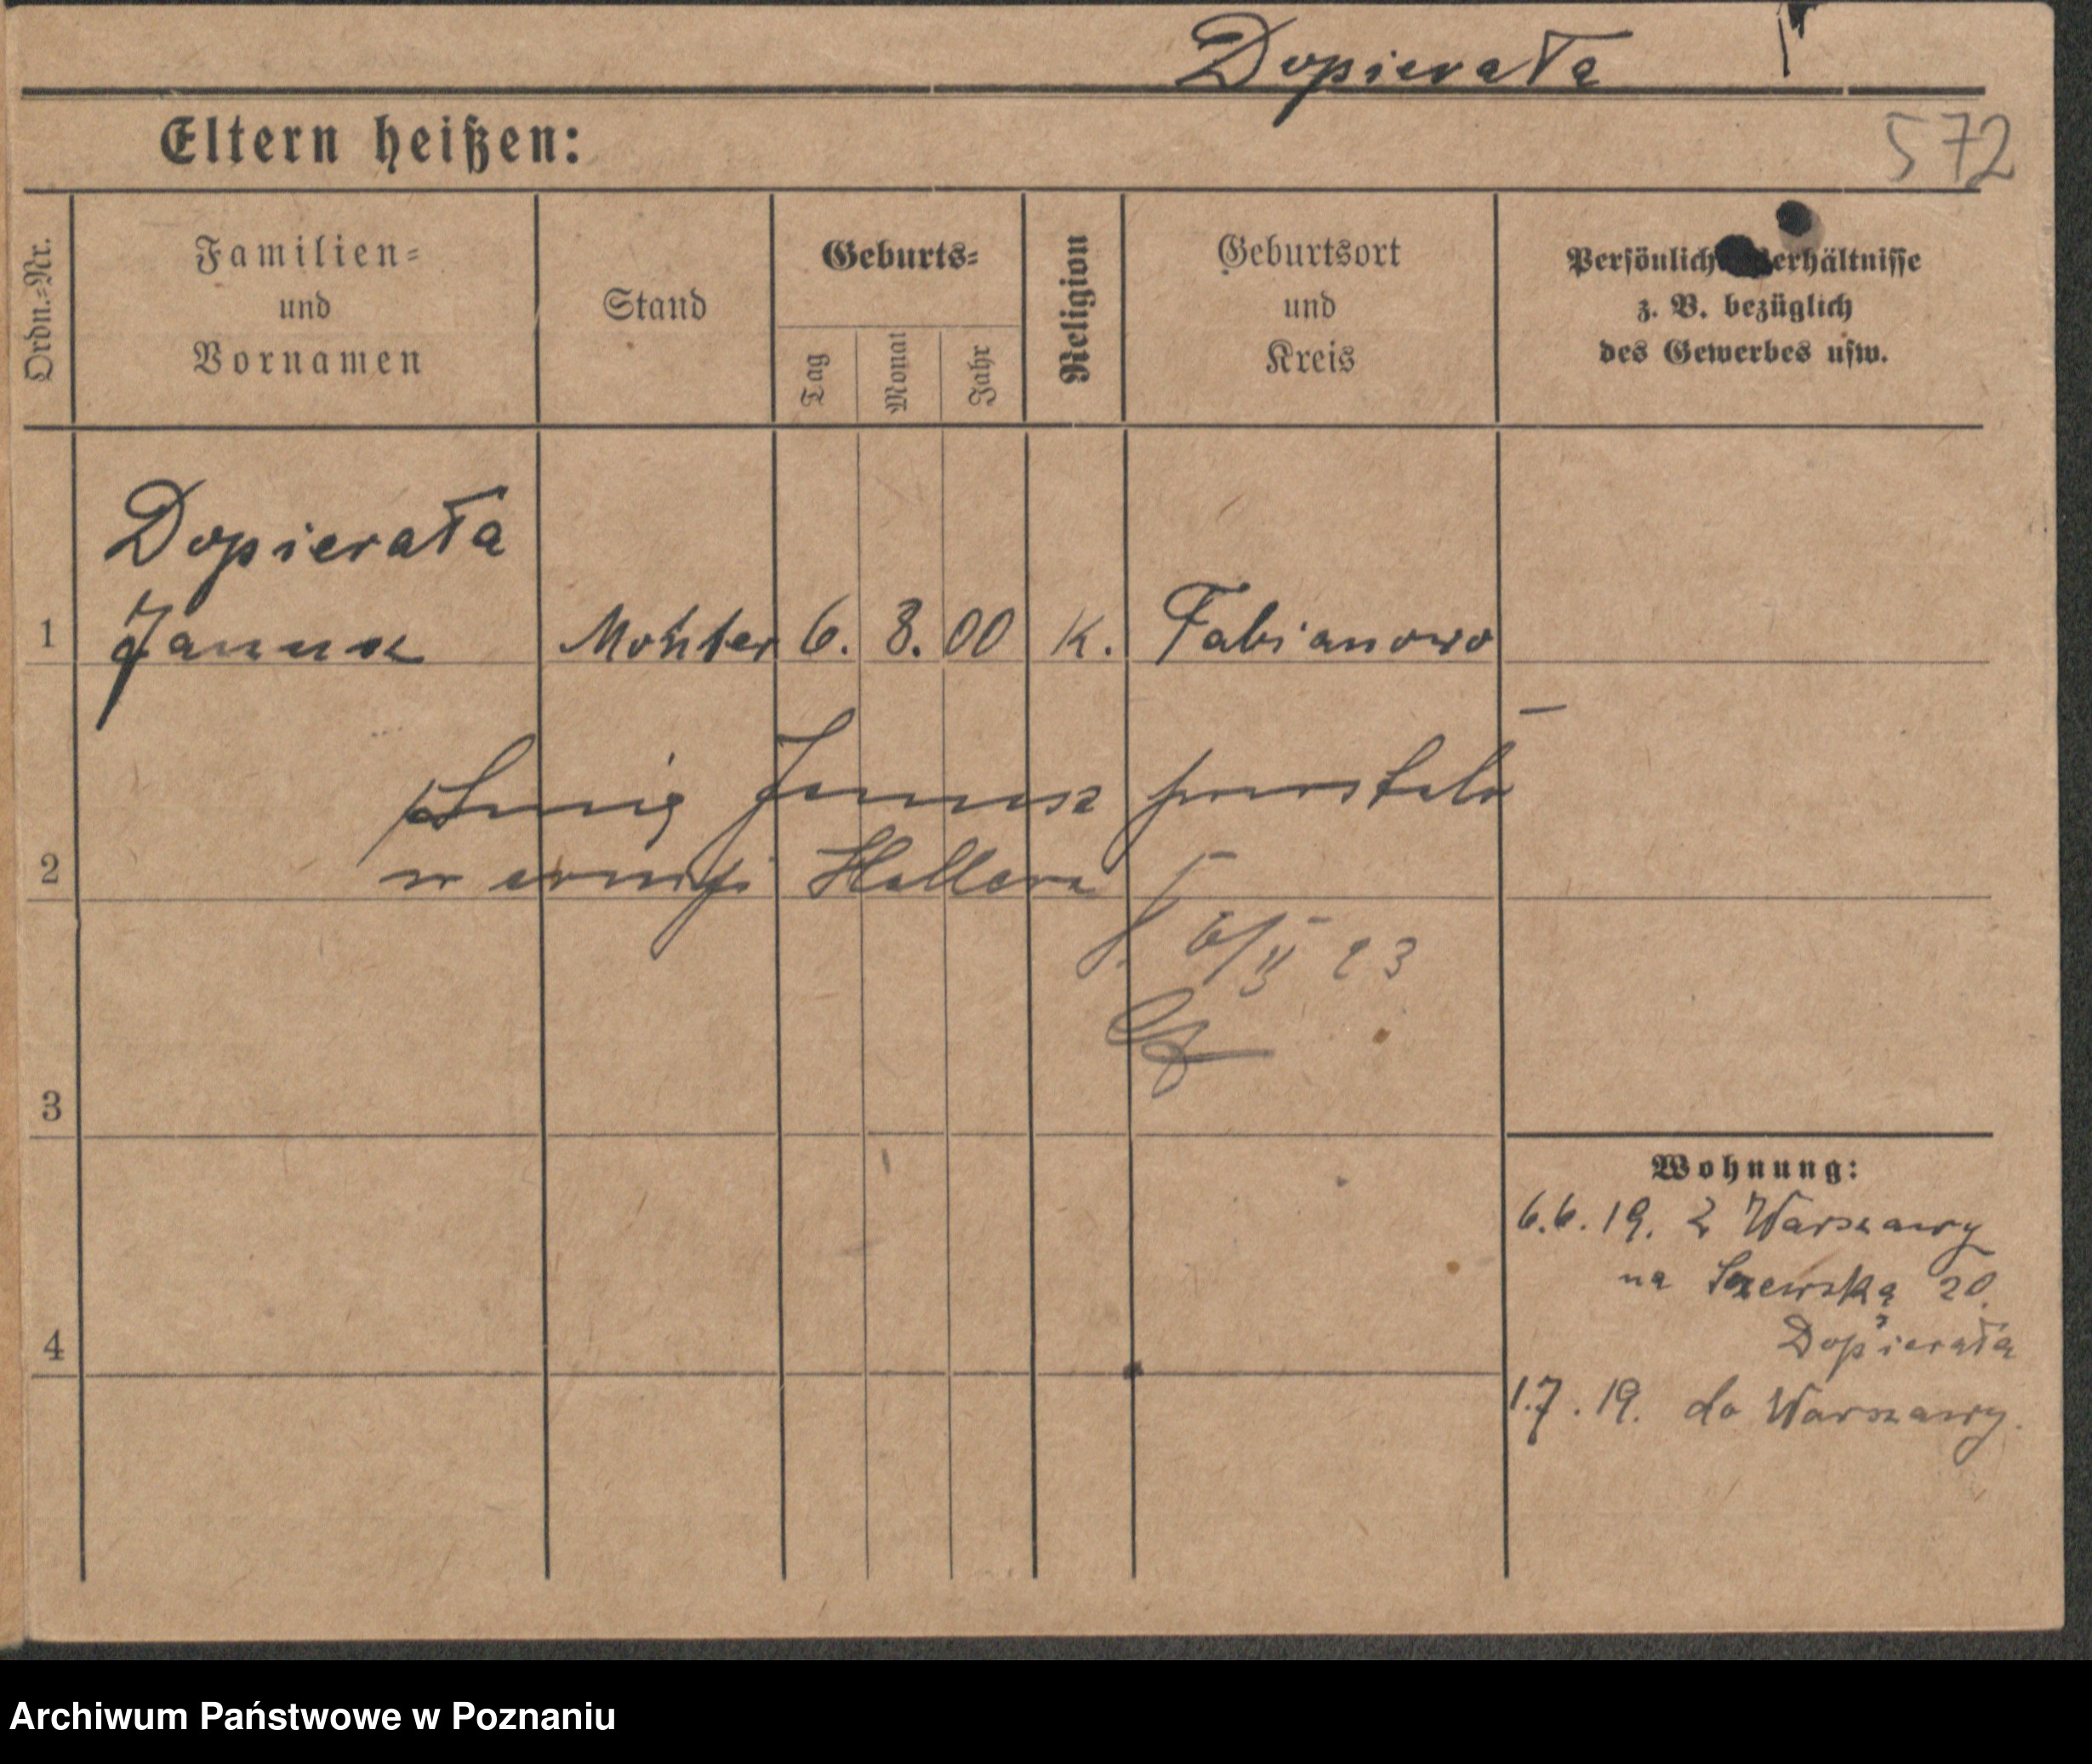 Dopierała
Eltern heißen:
572
Ordn.=Nr.
Familien=
und
Vornamen
Stand
Geburts=
Tag
Monat
Jahr
Religion
Geburtsort
und
Kreis
Persönliche Verhältnisse
z. B. bezüglich
des Gewerbes usw.
Dopierała
1 Janusz Monter 6. 8. 00 K. Fabianowo
Imię Janusz powstało
2 w armji Hallera
6/II 23
3
Wohnung:
6.6.19. z Warszawy
na Szewską 20.
4 Dopierała
1.7.19. do Warszawy.
Archiwum Państwowe w Poznaniu